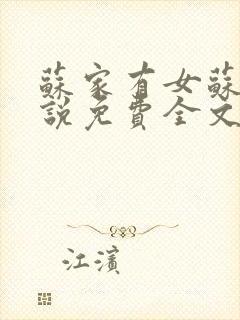 蘇家有女蘇
說免費全文
江濱